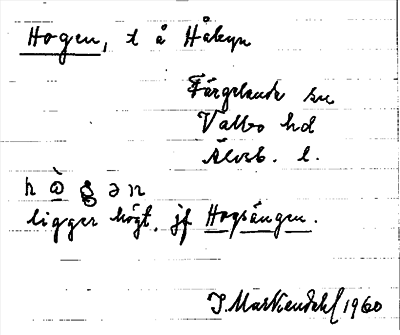 Hogen, t å Håbyn
Färgelanda sn
Valbo hd
Älvsb. l.
h ò g ə n
ligger högt. jf Hogsängen.
J. Markendahl 1960